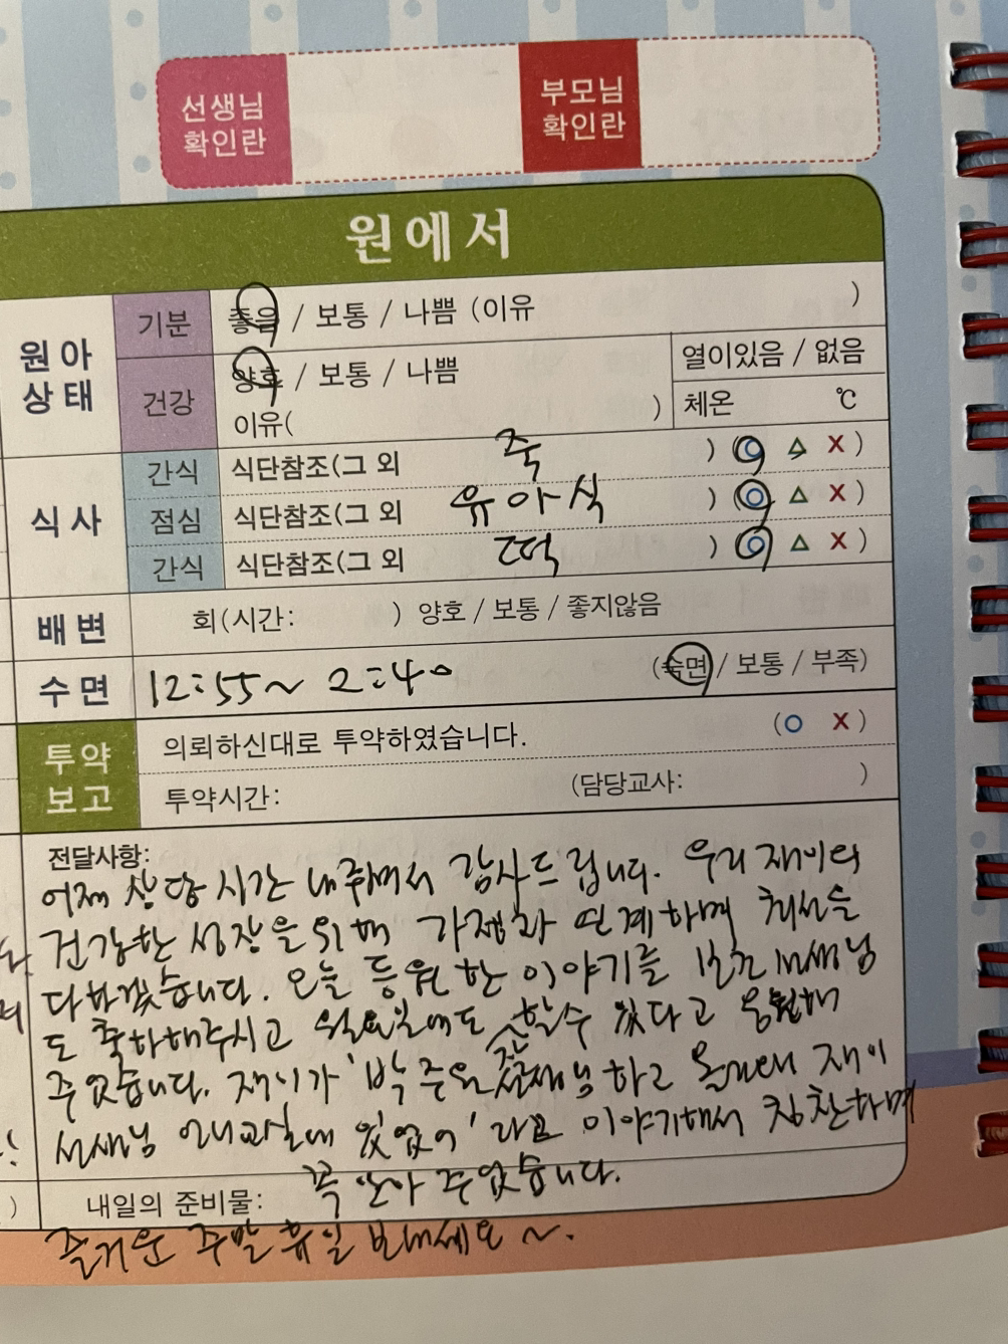 선생님
확인란
부모님
확인란
원에서
원아
상태
기분
좋음 / 보통 / 나쁨 (이유 )
건강
양호 / 보통 / 나쁨
이유( )
열이있음 / 없음
체온 ℃
식사
간식 식단참조(그 외 죽 ) (○ △ X)
점심 식단참조(그 외 유아식 ) (○ △ X)
간식 식단참조(그 외 떡 ) (○ △ X)
배변 회(시간: ) 양호 / 보통 / 좋지않음
수면 12:55~ 2:40 (숙면 / 보통 / 부족)
투약
보고
의뢰하신대로 투약하였습니다. (○ X)
투약시간: (담당교사: )
전달사항:
어제 상담 시간 내주셔서 감사드립니다. 우리 재이의
건강한 성장을 위해 가정과 연계하며 최선을
다하겠습니다. 오늘 등원 한 이야기를 선생님
도 축하해주시고 월요일에도 잘 할수 있다고 응원해
주었습니다. 재이가 '박주은 선생님 하고 올거야 재이
선생님 교실에 있었어' 라고 이야기해서 칭찬하며
꼭 안아 주었습니다.
내일의 준비물:
즐거운 주말 휴일 보내세요 ~.